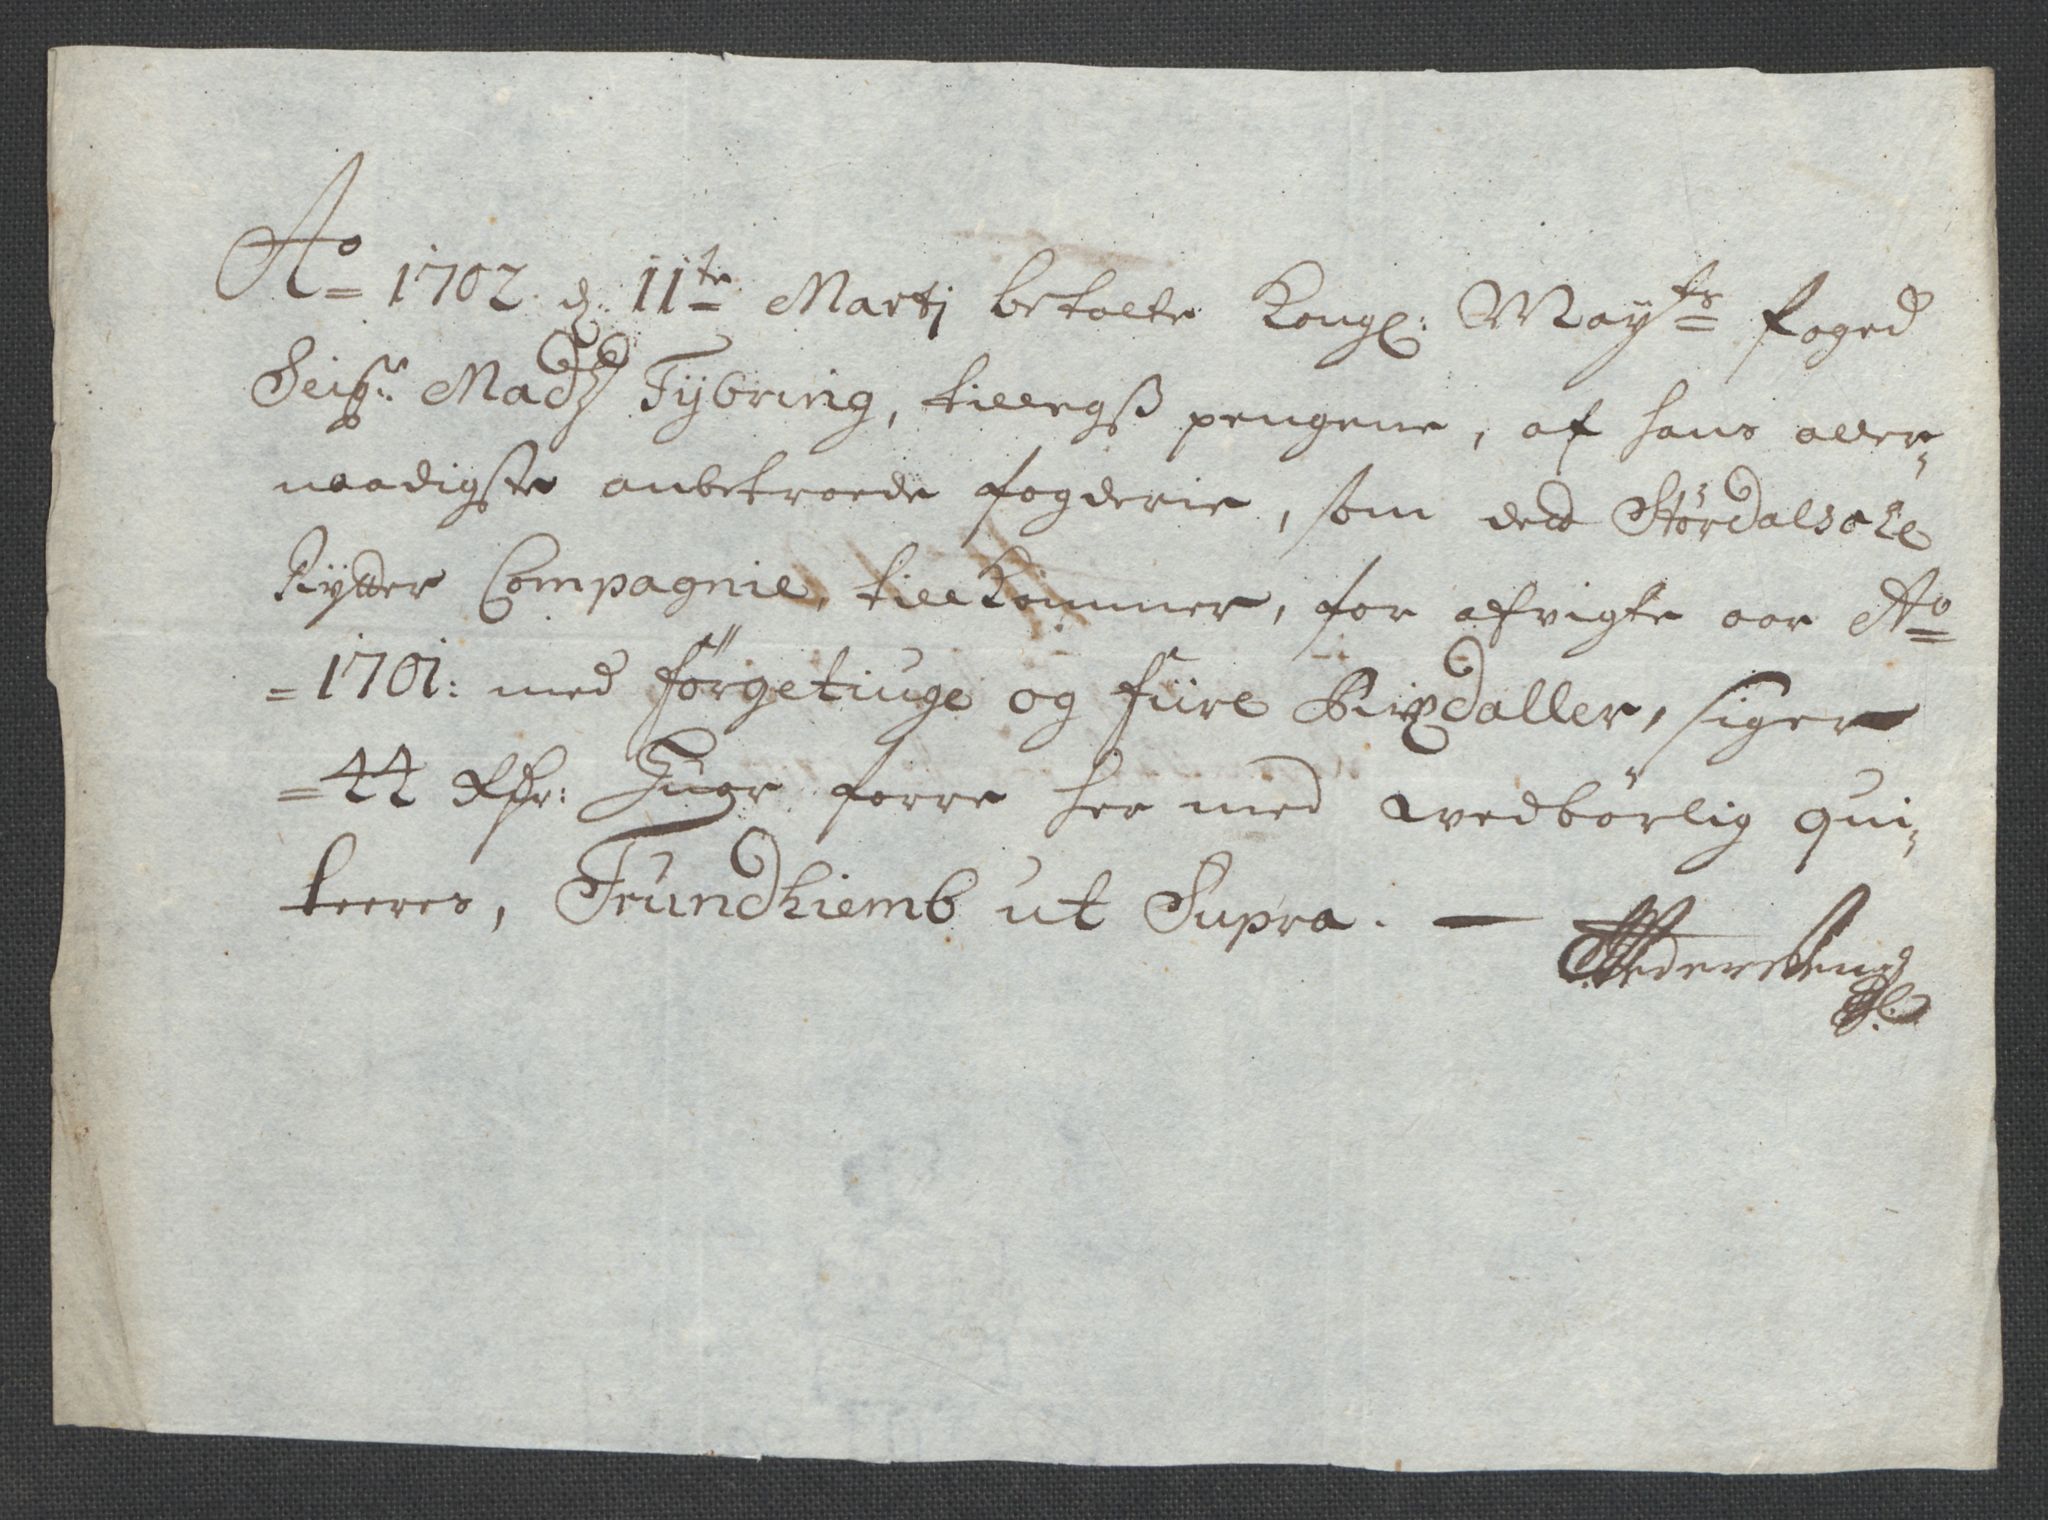 Ao 1702 d. 11te Martj betalte Kongl: Mayts foged
Seigr: Madz Tÿbring, tillegß pengene, af hans aller-
naadigste anbetroede fogderie, som det Stördalsske
Rÿtter Compagnie, tillkommer, for afvigte aar Ao
=1701: med förgetiuge og fiire Rixdaller, siger
=44 Rdr: Huor forre her med wedbörlig qui-
teeres, Trundhiemb ut Supra. —